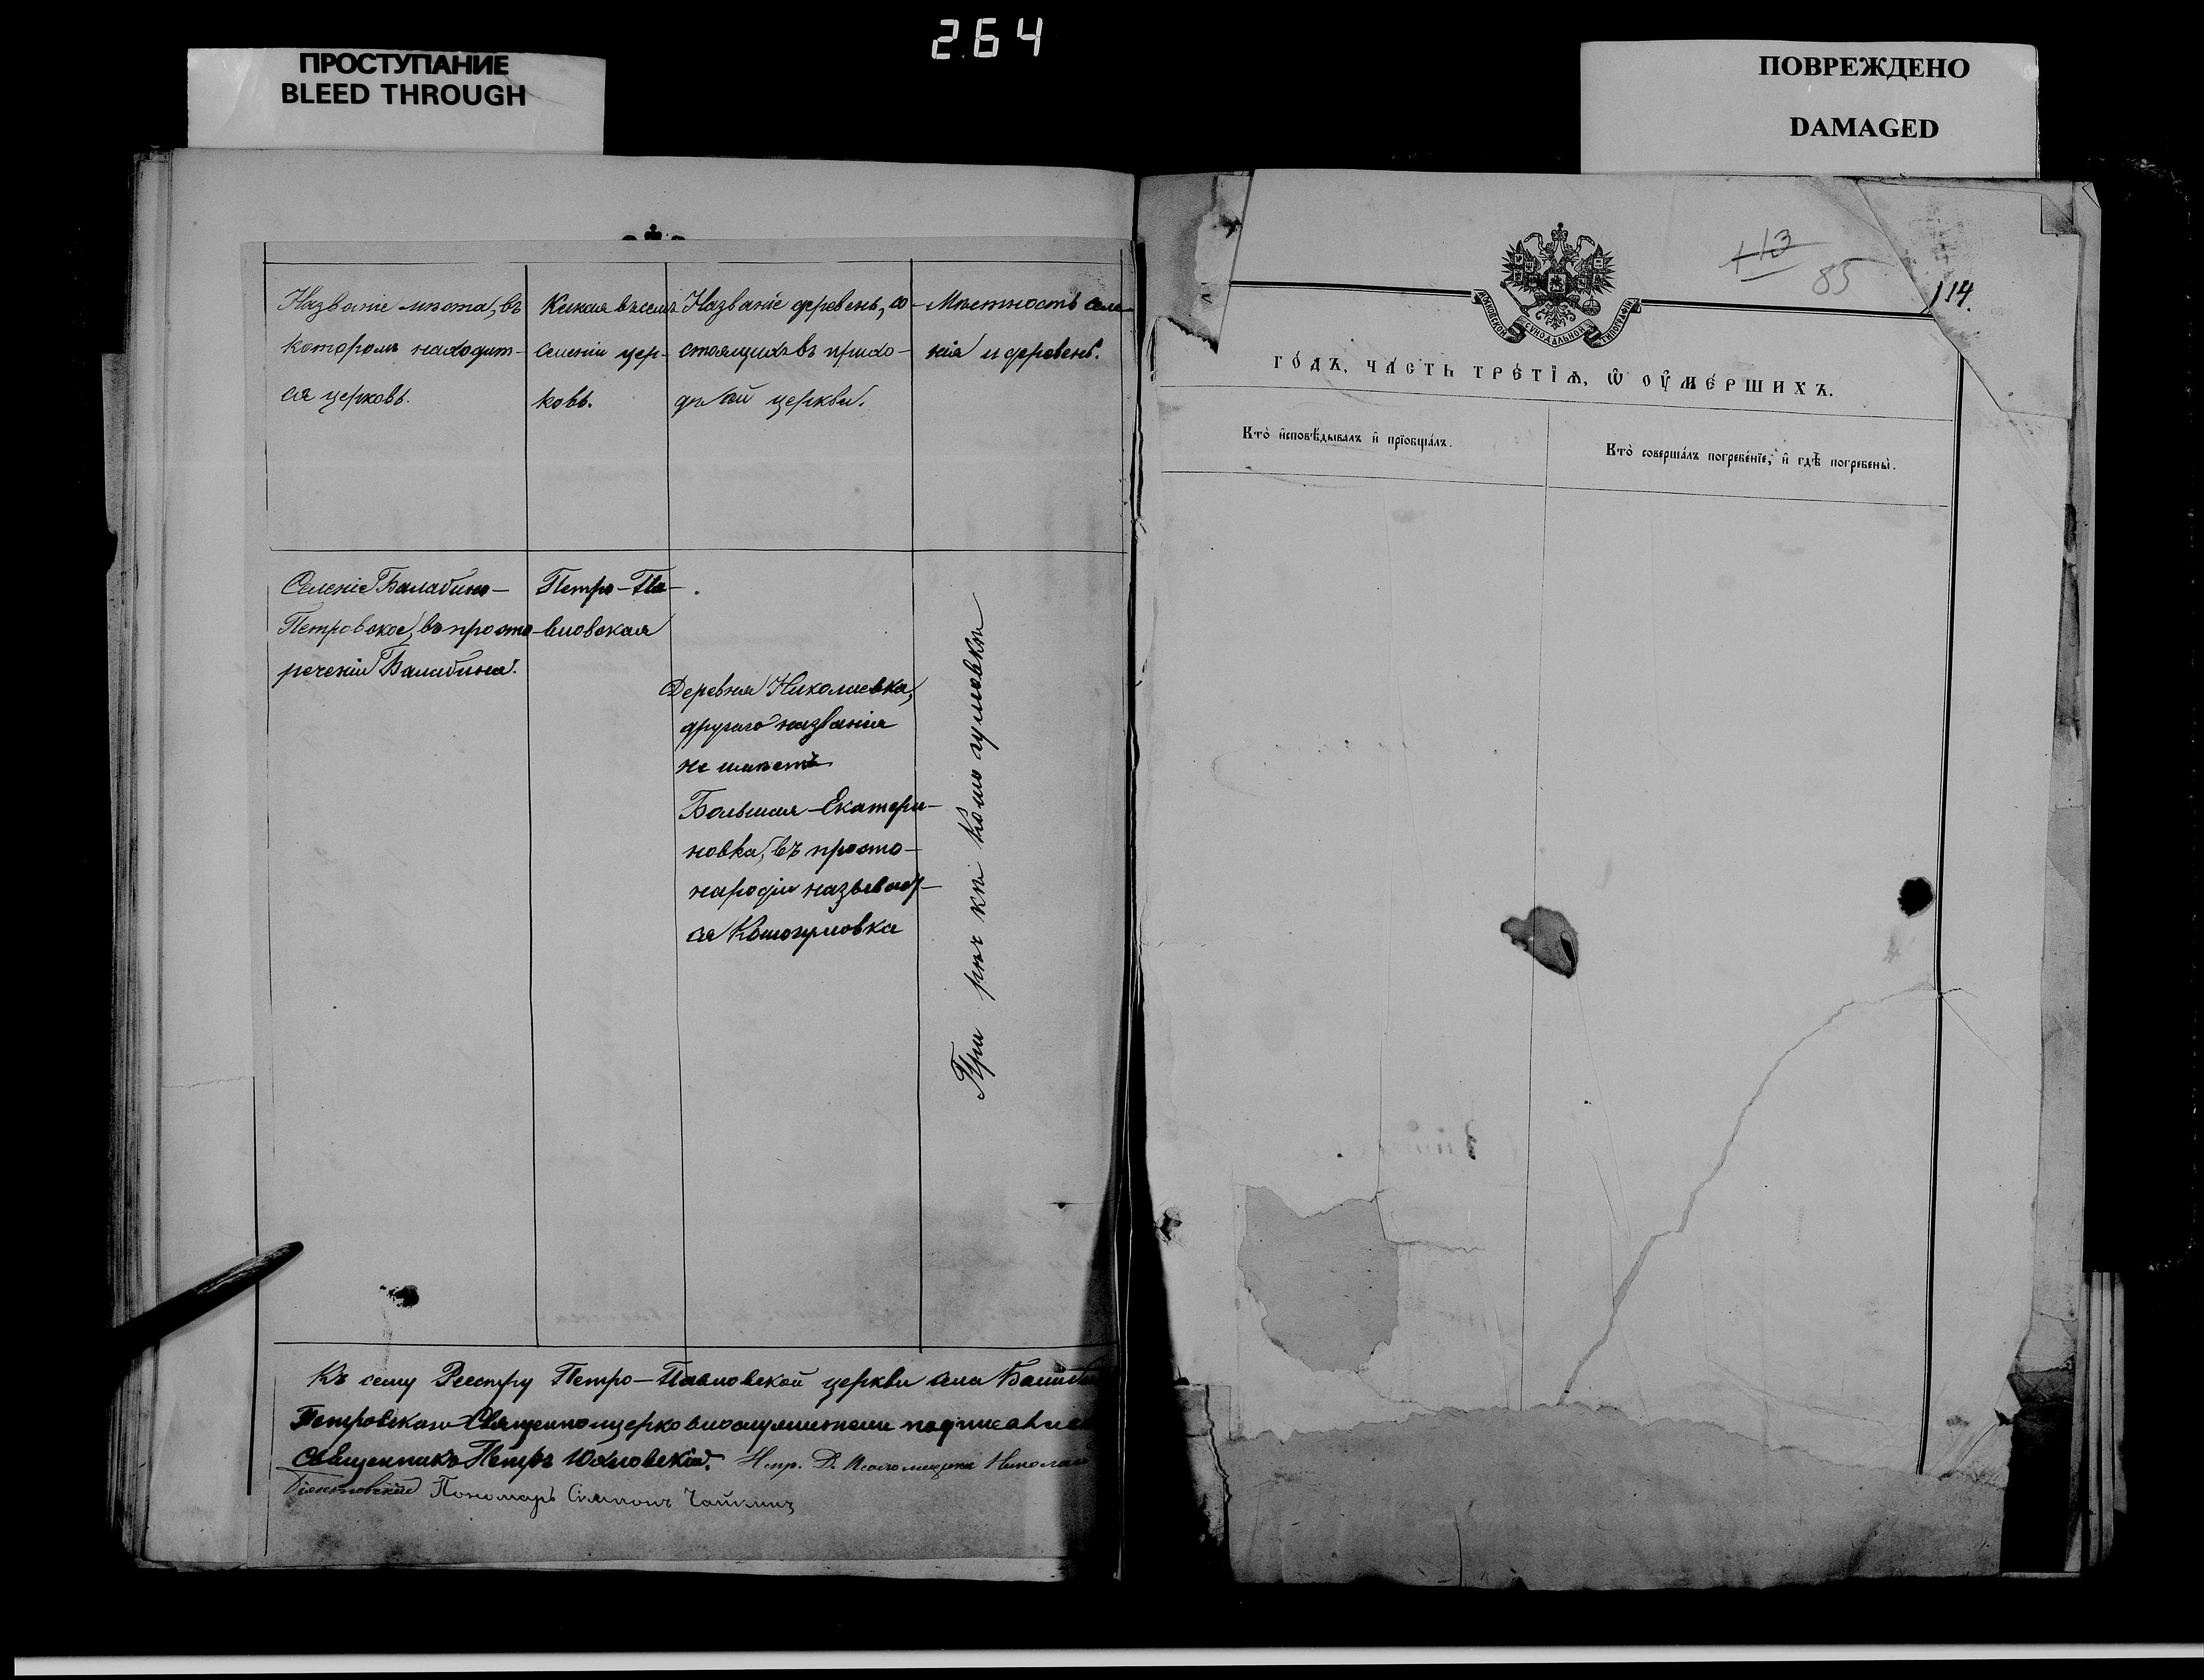 264
ПРОСТУПАНИЕ
BLEED THROUGH
ПОВРЕЖДЕНО
DAMAGED
Названіе мѣста, въ
которомъ находит-
ся церковь.
Какая въ семъ
селеніи цер-
ковь.
Названіе деревень, со-
стоящихъ въ прихо-
дѣ сей церкви.
Мѣстность селе-
нія и деревень.
Селеніе Балабино-
Петровское, въ просто-
реченіи Балабина.
Петро-Па-
вловская
Деревня Николаевка,
другаго названія
не имѣетъ
Большая-Екатери-
новка, въ просто-
народіи называет-
ся Кошогумовка
При рѣчкѣ Кошогумовкѣ
Къ сему Реестру Петро-Павловской церкви села Балабин
Петровскаго Священноцерковнослужители подписались
Священникъ Петръ Николай
Пономарь Симпонъ Чайкинъ
113
85
114.
МОСКОВСКОЙ СѴНОДАЛЬНОЙ ТИПОГРАФІИ
ГО́ДЪ, ЧА́СТЬ ТРЕ́ТЇѦ, Ѡ҆ ОУ҆МЕ́РШИХЪ.
Кто̀ и҆сповѣ́дывалъ и҆ прїобща́лъ.
Кто̀ соверша́лъ погребе́нїе, и҆ гдѣ̀ погребены̀.